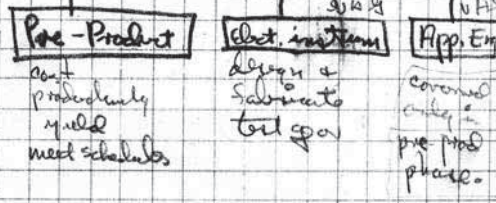 Pre-Product
cost
productivity
yield
meet schedules
elect. instrum
design &
fabricate
test
App. En
covered
only in
pre-prod
phase.